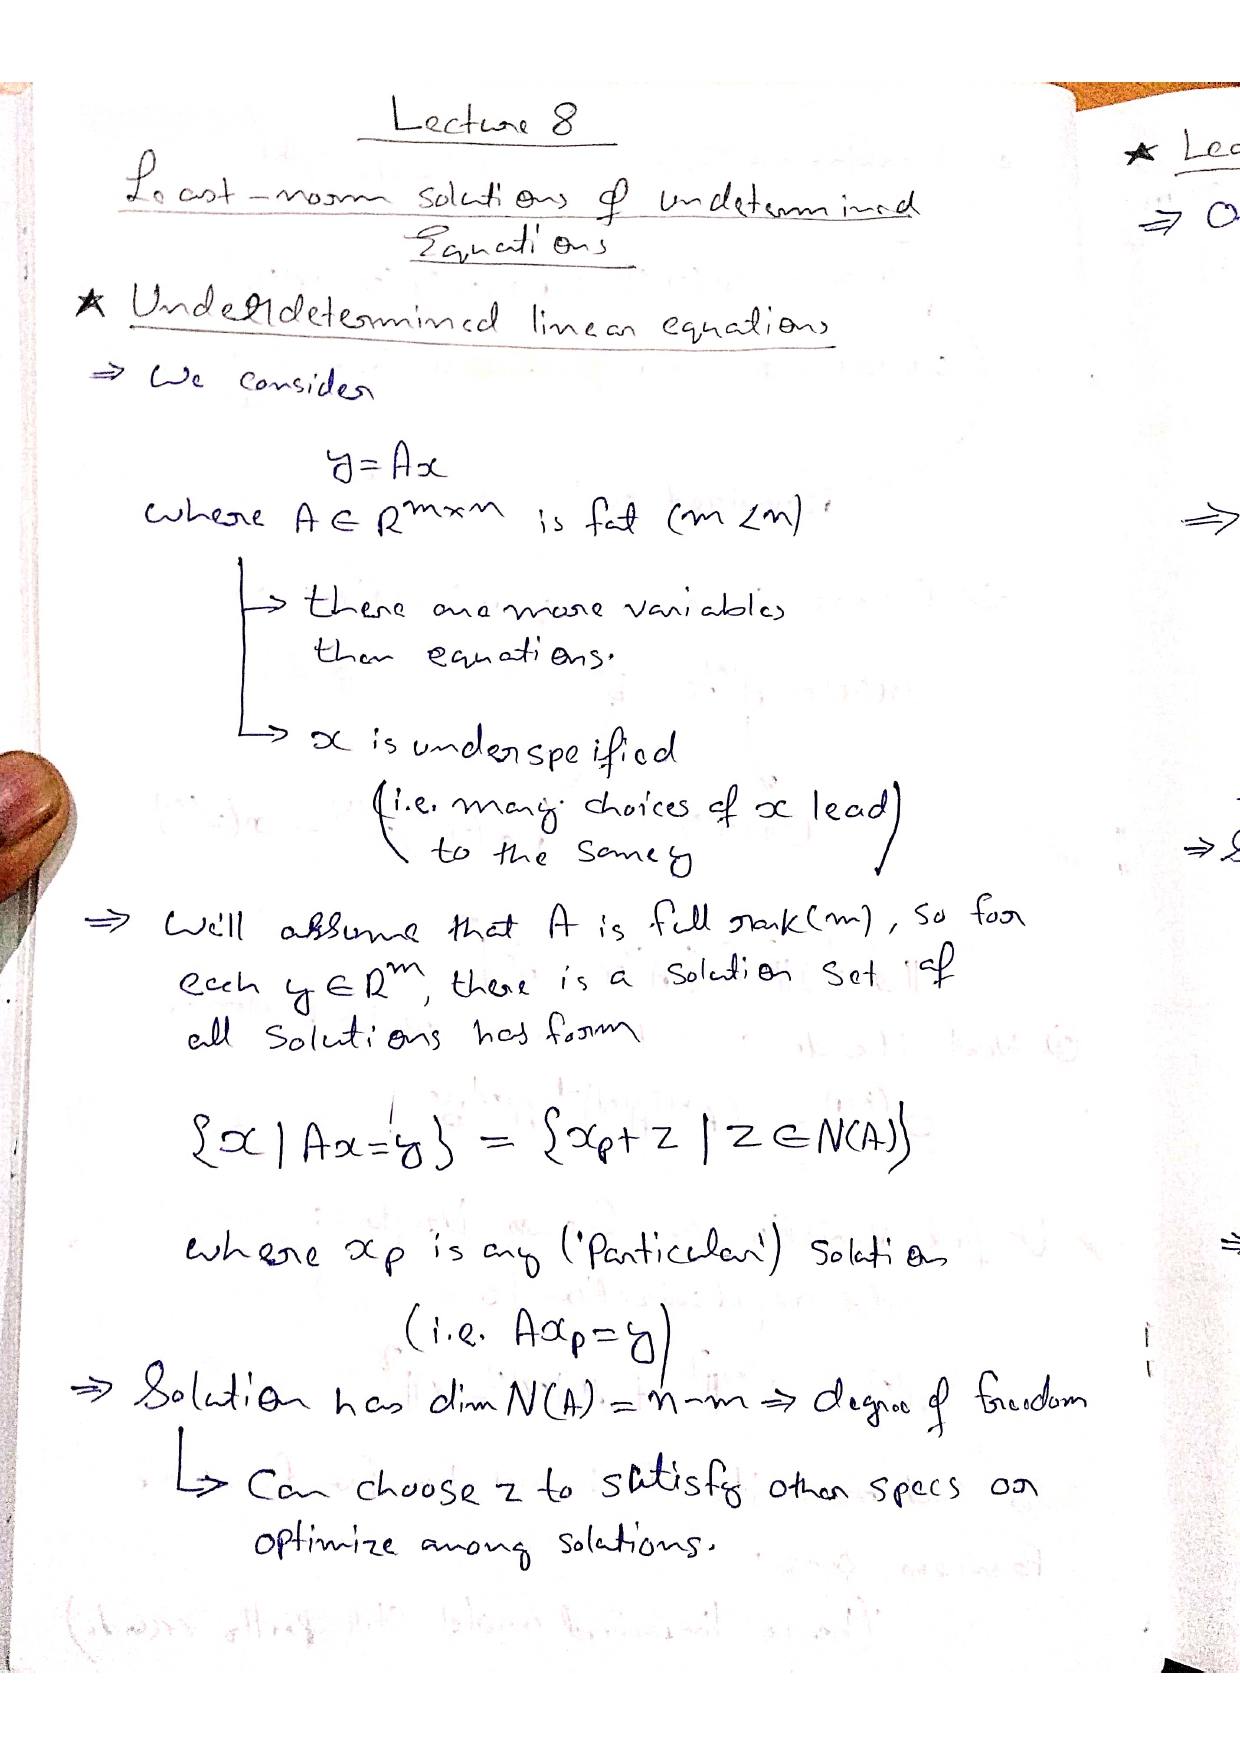 Lecture 8
Least-norm solutions of undetermined
Equations
★ Underdetermined linear equations
⇒ We consider
y = Ax
where A ∈ R^{m×n} is fat (m < n)
↳ there are more variables
than equations.
↳ x is underspeified
(i.e. many choices of x lead)
to the same y
⇒ We'll assume that A is full rank (m), so for
each y ∈ R^m, there is a solution set of
all solutions has form
{x | Ax = y} = {x_p + z | z ∈ N(A)}
where x_p is any ('Particular') solution
(i.e. Ax_p = y)
⇒ Solution has dim N(A) = n-m ⇒ degree of freedom
↳ Can choose z to satisfy other specs or
optimize among solutions.
★ Lea
⇒ O
⇒
⇒
⇒